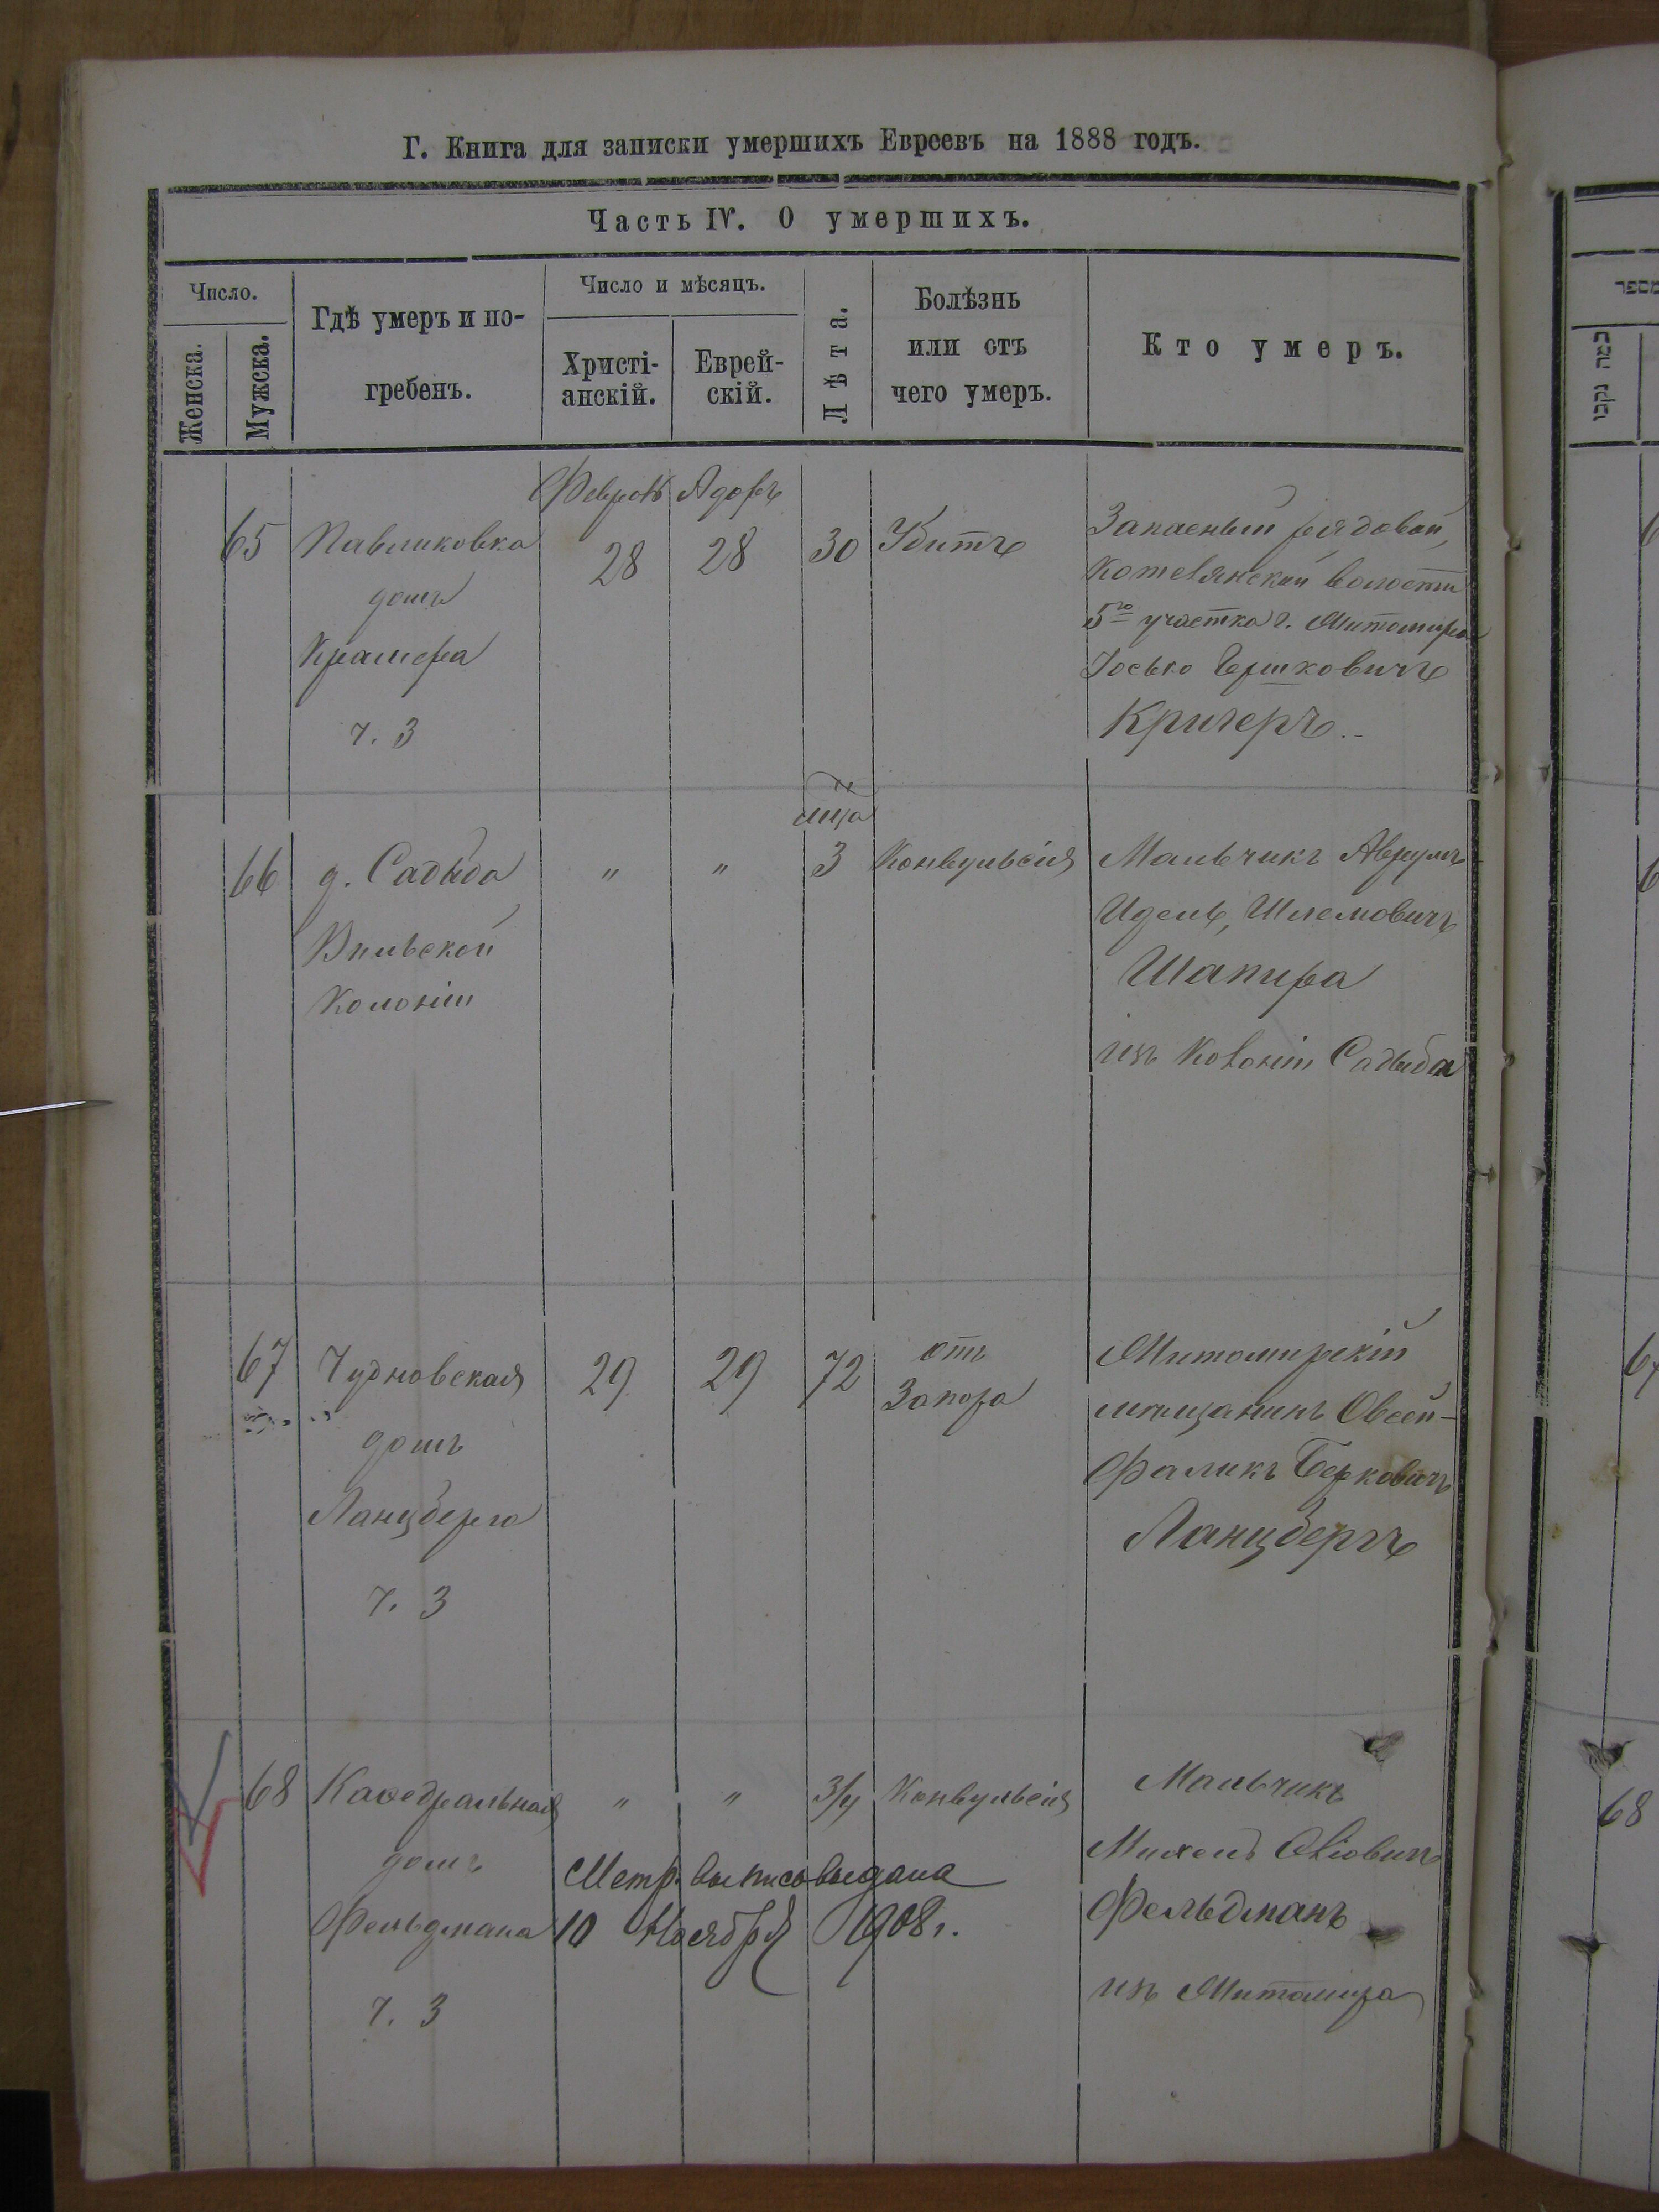 Г. Книга для записки умершихъ Евреевъ на 1888 годъ.
Часть IV. О умершихъ.
Число.
Женска.
Мужска.
Гдѣ умеръ и по-
гребенъ.
Число и мѣсяцъ.
Христі-
анскій.
Еврей-
скій.
Лѣта.
Болѣзнь
или отъ
чего умеръ.
Кто умеръ.
65
Павликовка
домъ
Крамера
ч. 3
Феврал
28
Адоръ
28
30
Убитъ
Запасный рядовой,
Котелянской волости
5го участка г. Житомира
Іосько Гершковичъ
Кригеръ
66
д. Садыба
Вильской
Колоніи
"
"
мца
3
Конвульсія
Мальчикъ Аврумъ-
Идель, Шлемовичъ
Шапира
изъ Колоніи Садыба
67
Чудновская
домъ
Ланцберга
ч. 3
29
29
72
отъ
Запора
Житомирскій
мѣщанинъ Овсей-
Фаликъ Берковичъ
Ланцбергъ
68
Каѳедральная
домъ
Фельдмана
ч. 3
"
"
3/4
Конвульсія
Метр. выпись выдана
10 Ноября 1908 г.
Мальчикъ
Фельдманъ
изъ Житомира
מספר
6
6
67
68